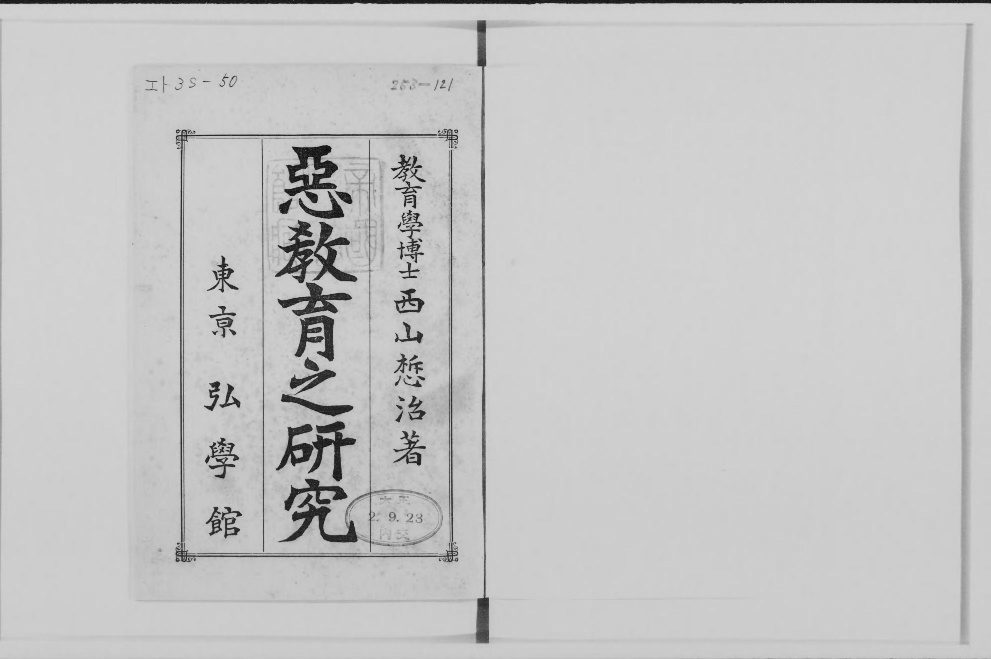 エト35-50
255-121
教育學博士西山悊治著
惡教育之研究
東京 弘學館
大正
2. 9. 23
内交